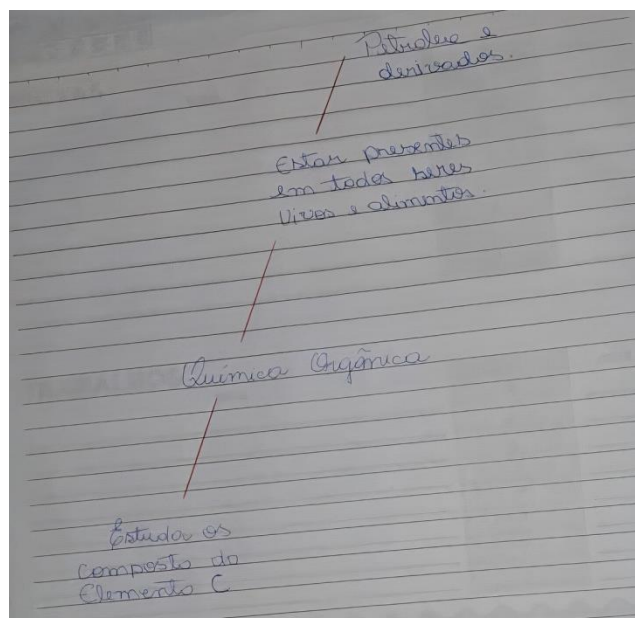 Petroleo e
derivados.
Estar presentes
em todos seres
Vivos e alimentos.
Química Orgânica
Estuda os
composto do
Elemento C